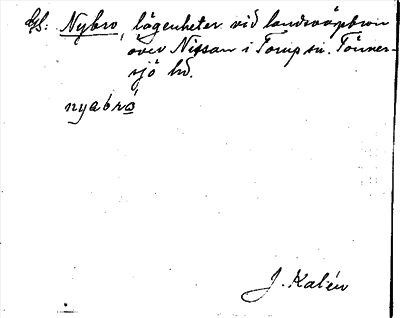 Gs: Nybro, lägenheter vid landsvägsbron
över Nissan i Torup sn. Tönner-
sjö hd.
nyabró
J. Kalén